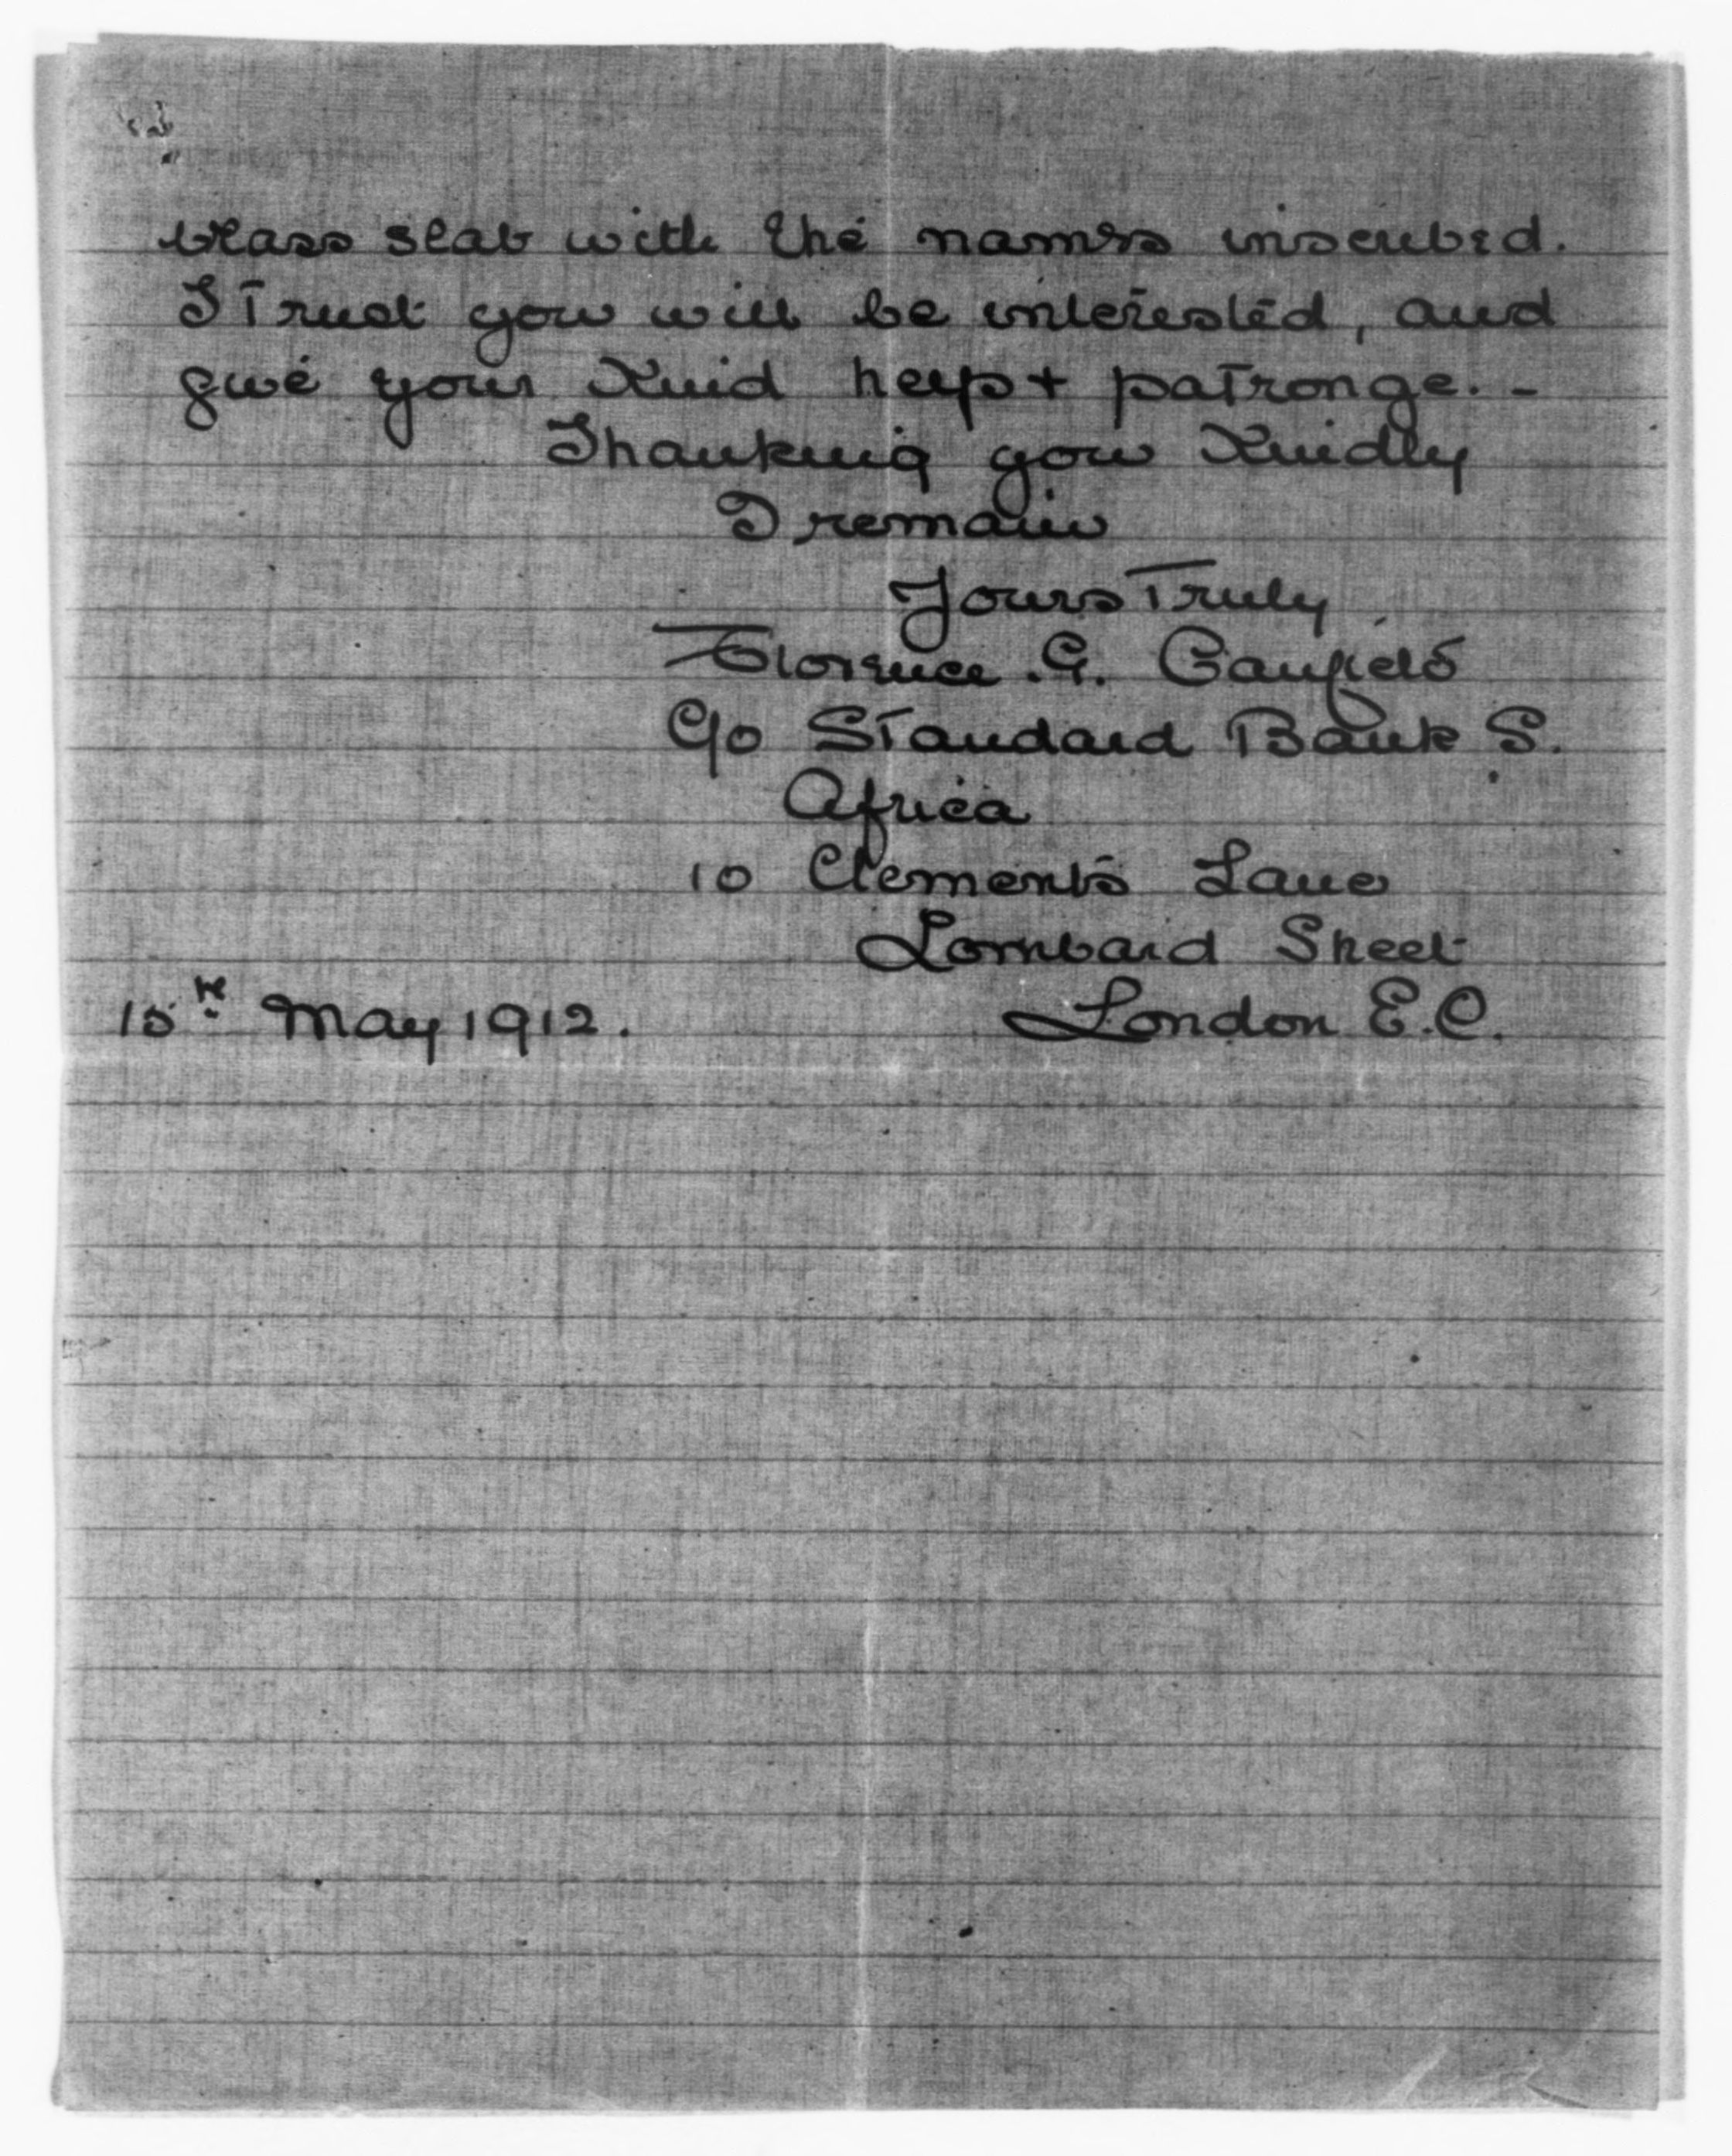 brass slab with the names inscribed.
I Trust you will be interested, and
give your Kind help + patronge. -
Thanking you Kindly
I remain
Yours Truly
Florence. G. Canfield
C/o Standard Bank S.
Africa
10 Clements Lane
Lombard Street
15th May 1912. London E.C.